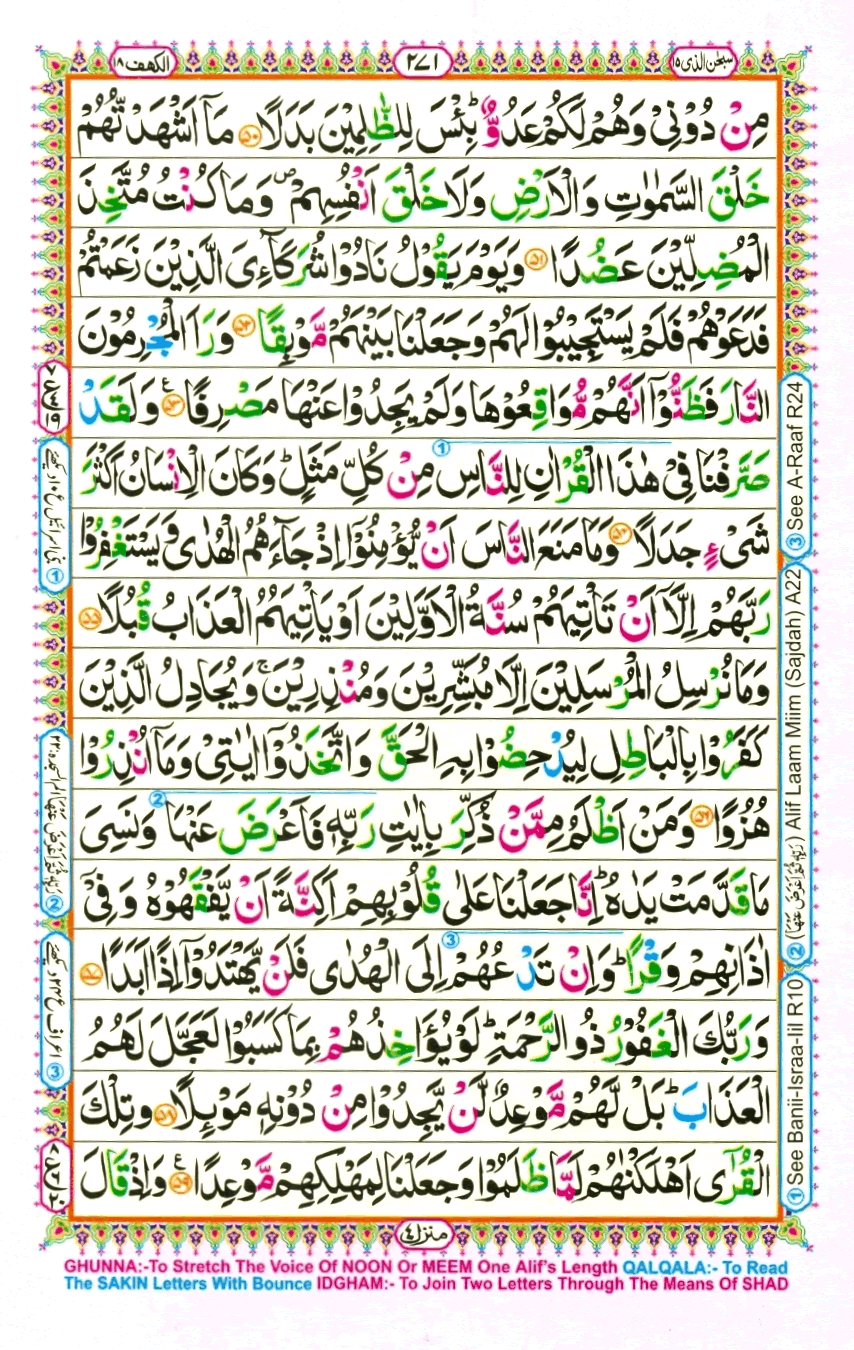 سبحٰن الذی ۱۵
۲۷۱
الکھف ۱۸
مِنْ دُوْنِیْ وَهُمْ لَكُمْ عَدُوٌّ ؕ بِئْسَ لِلظّٰلِمِیْنَ بَدَلًا ۝۵۰ مَاۤ اَشْهَدْتُّهُمْ
خَلْقَ السَّمٰوٰتِ وَالْاَرْضِ وَلَا خَلْقَ اَنْفُسِهِمْ ۪ وَمَا كُنْتُ مُتَّخِذَ
الْمُضِلِّیْنَ عَضُدًا ۝۵۱ وَیَوْمَ یَقُوْلُ نَادُوْا شُرَكَآءِیَ الَّذِیْنَ زَعَمْتُمْ
فَدَعَوْهُمْ فَلَمْ یَسْتَجِیْبُوْا لَهُمْ وَجَعَلْنَا بَیْنَهُمْ مَّوْبِقًا ۝۵۲ وَرَاَ الْمُجْرِمُوْنَ
النَّارَ فَظَنُّوْۤا اَنَّهُمْ مُّوَاقِعُوْهَا وَلَمْ یَجِدُوْا عَنْهَا مَصْرِفًا ۝۵۳ ع وَلَقَدْ
صَرَّفْنَا فِیْ هٰذَا الْقُرْاٰنِ لِلنَّاسِ مِنْ كُلِّ مَثَلٍ ؕ وَكَانَ الْاِنْسَانُ اَكْثَرَ
شَیْءٍ جَدَلًا ۝۵۴ وَمَا مَنَعَ النَّاسَ اَنْ یُّؤْمِنُوْۤا اِذْ جَآءَهُمُ الْهُدٰی وَیَسْتَغْفِرُوْا
رَبَّهُمْ اِلَّاۤ اَنْ تَاْتِیَهُمْ سُنَّةُ الْاَوَّلِیْنَ اَوْ یَاْتِیَهُمُ الْعَذَابُ قُبُلًا ۝۵۵
وَمَا نُرْسِلُ الْمُرْسَلِیْنَ اِلَّا مُبَشِّرِیْنَ وَمُنْذِرِیْنَ ۚ وَیُجَادِلُ الَّذِیْنَ
كَفَرُوْا بِالْبَاطِلِ لِیُدْحِضُوْا بِهِ الْحَقَّ وَاتَّخَذُوْۤا اٰیٰتِیْ وَمَاۤ اُنْذِرُوْا
هُزُوًا ۝۵۶ وَمَنْ اَظْلَمُ مِمَّنْ ذُكِّرَ بِاٰیٰتِ رَبِّهٖ فَاَعْرَضَ عَنْهَا وَنَسِیَ
مَا قَدَّمَتْ یَدٰهُ ؕ اِنَّا جَعَلْنَا عَلٰی قُلُوْبِهِمْ اَكِنَّةً اَنْ یَّفْقَهُوْهُ وَفِیْۤ
اٰذَانِهِمْ وَقْرًا ؕ وَاِنْ تَدْعُهُمْ اِلَی الْهُدٰی فَلَنْ یَّهْتَدُوْۤا اِذًا اَبَدًا ۝۵۷
وَرَبُّكَ الْغَفُوْرُ ذُو الرَّحْمَةِ ؕ لَوْ یُؤَاخِذُهُمْ بِمَا كَسَبُوْا لَعَجَّلَ لَهُمُ
الْعَذَابَ ؕ بَلْ لَّهُمْ مَّوْعِدٌ لَّنْ یَّجِدُوْا مِنْ دُوْنِهٖ مَوْىِٕلًا ۝۵۸ وَتِلْكَ
الْقُرٰۤی اَهْلَكْنٰهُمْ لَمَّا ظَلَمُوْا وَجَعَلْنَا لِمَهْلِكِهِمْ مَّوْعِدًا ۝۵۹ ع وَاِذْ قَالَ
منزل ۴
③ See A-Raaf R24
② (رَبِّهٖ ثُمَّ اَعْرَضَ عَنْهَا) Alif Laam Miim (Sajdah) A22
① See Banii-Israa-Iil R10
GHUNNA:-To Stretch The Voice Of NOON Or MEEM One Alif's Length QALQALA:- To Read
The SAKIN Letters With Bounce IDGHAM:- To Join Two Letters Through The Means Of SHAD